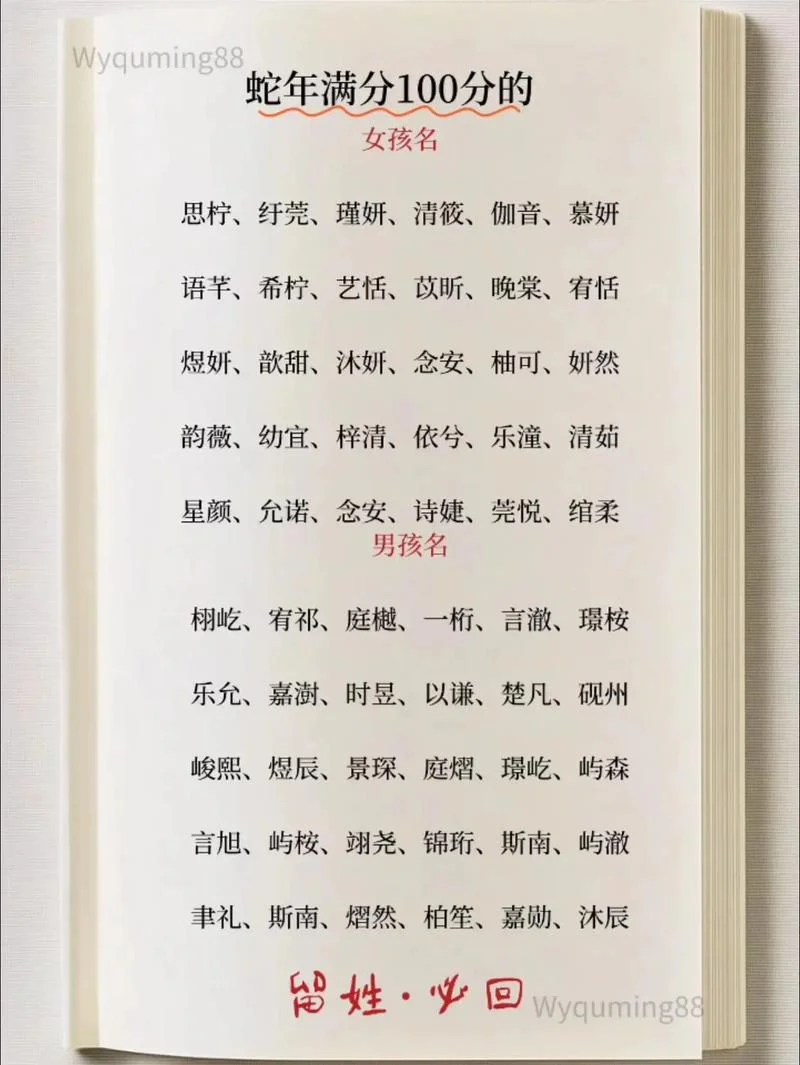 Wyquming88
蛇年满分100分的
女孩名
思柠、纡莞、瑾妍、清筱、伽音、慕妍
语芊、希柠、艺恬、苡昕、晚棠、宥恬
煜妍、歆甜、沐妍、念安、柚可、妍然
韵薇、幼宜、梓清、依兮、乐潼、清茹
星颜、允诺、念安、诗婕、莞悦、绾柔
男孩名
栩屹、宥祁、庭樾、一桁、言澈、璟桉
乐允、嘉澍、时昱、以谦、楚凡、砚州
峻熙、煜辰、景琛、庭熠、璟屹、屿森
言旭、屿桉、翊尧、锦珩、斯南、屿澈
聿礼、斯南、熠然、柏笙、嘉勋、沐辰
留姓·必回
Wyquming88